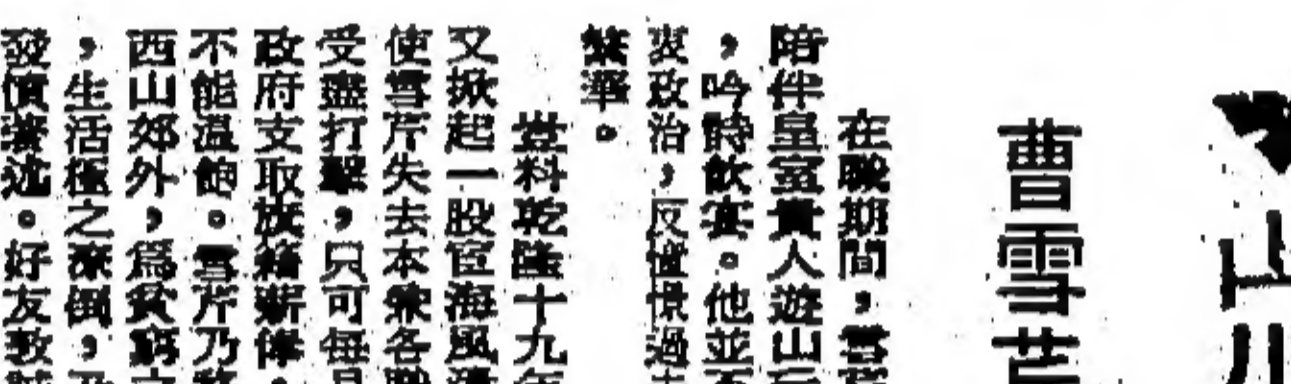 曹雪芹
在職期間,雪
陪伴皇室貴人遊山
,吟詩飲宴。他並不
衷政治,反憧憬過去
繁華。
豈料乾隆十九年
又掀起一股宦海風
使雪芹失去本兼各職
受盡打擊,只可每月
政府支取旗籍薪俸,
不能溫飽。雪芹乃
西山郊外,爲貧窮
,生活極之潦倒,乃
發憤著述。好友敦